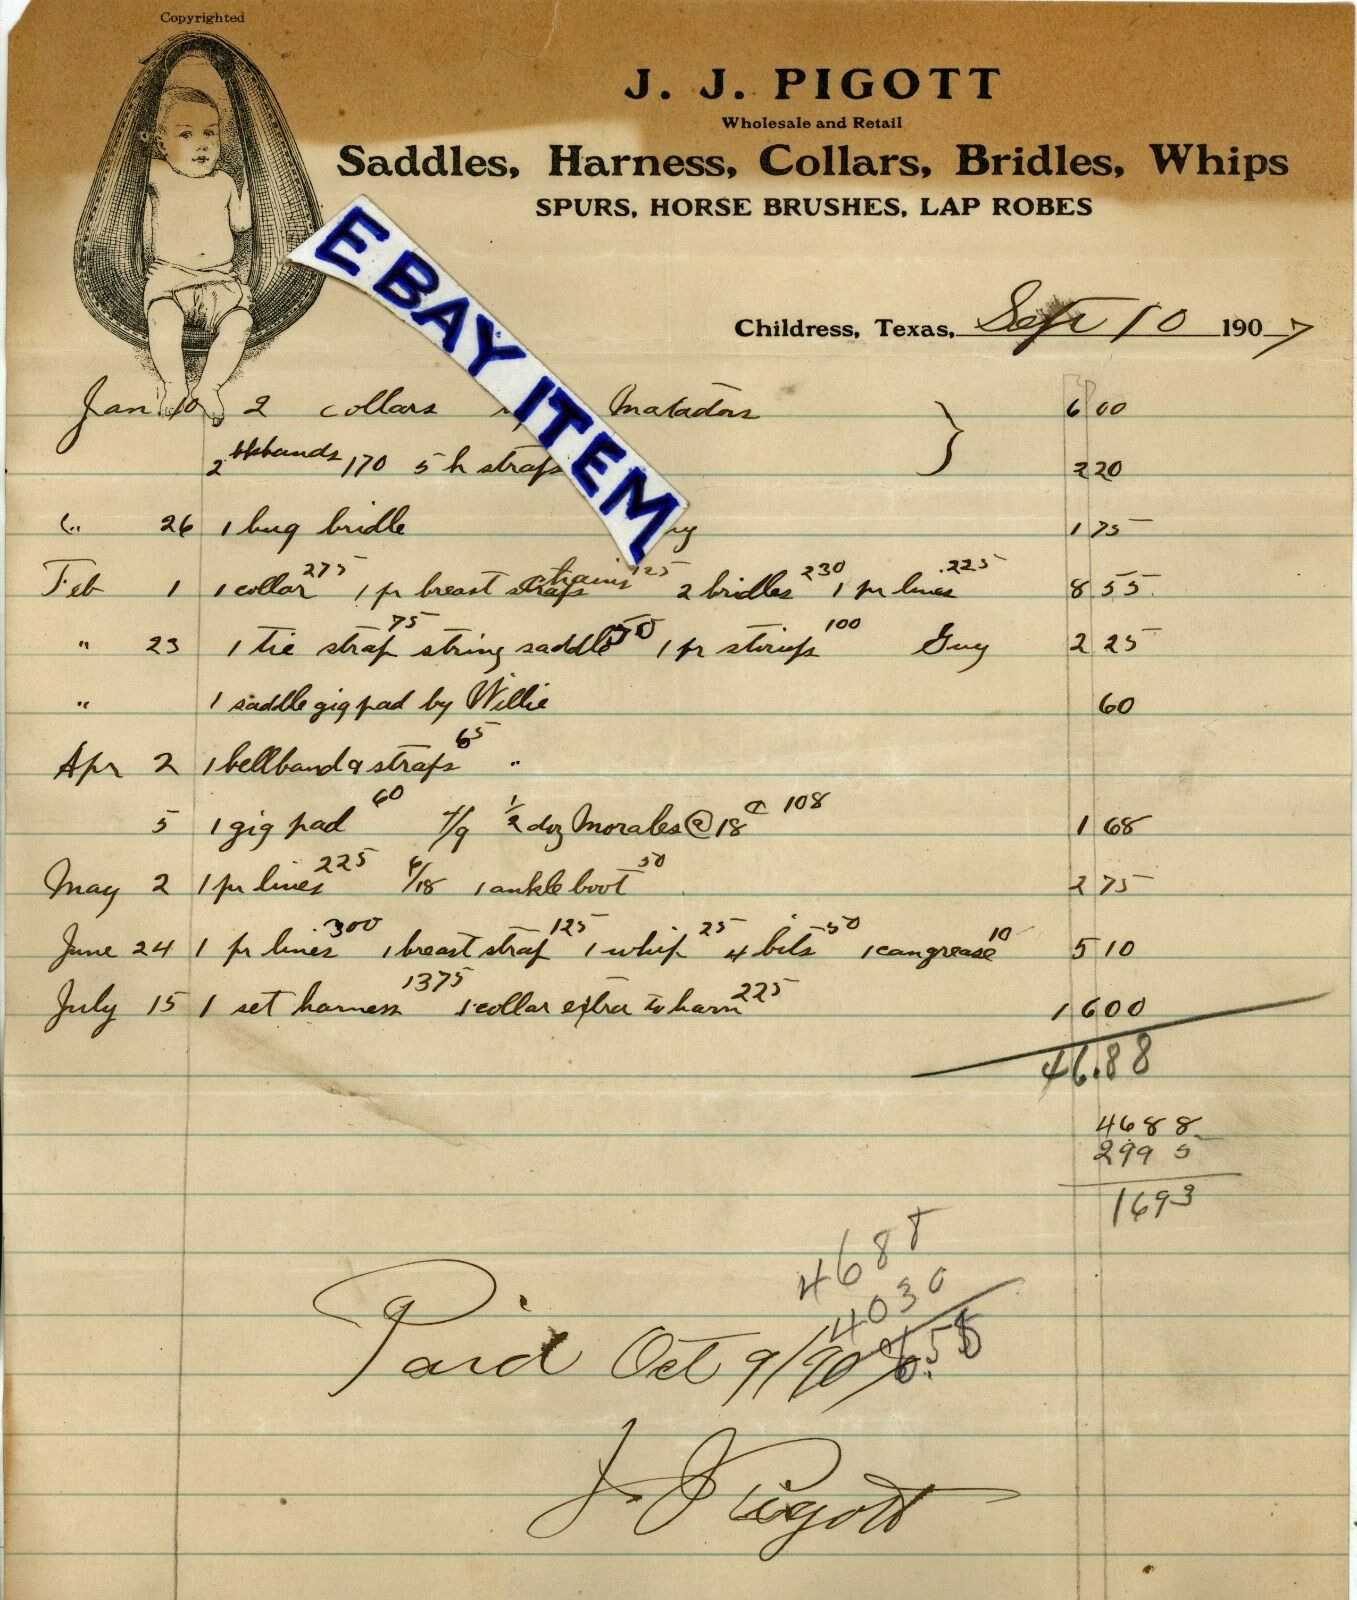 Copyrighted
J. J. PIGOTT
Wholesale and Retail
Saddles, Harness, Collars, Bridles, Whips
SPURS, HORSE BRUSHES, LAP ROBES
EBAY ITEM
Childress, Texas, Sept 10 1907
Jan 10 2 collars Matadors 6 00
2 bkbands 170 5 h straps 2 20
" 26 1 bug bridle 1 75
Feb 1 1 collar 275 1 pr breast chains 125 2 bridles 230 1 pr lines 225 8 55
" 23 1 tie strap 75 string saddle 50 1 pr stirups 100 Guy 2 25
" 1 saddle gig pad by Willie 60
Apr 2 1 bellband & straps 65 "
5 1 gig pad 60 4/9 1/2 doz Morales @ 18¢ 108 1 68
May 2 1 pr lines 225 6/18 1 ankle boot 50 2 75
June 24 1 pr lines 300 1 breast strap 125 1 whip 25 4 bits 50 1 can grease 10 5 10
July 15 1 set harness 1375 1 collar extra to harn 225 16 00
46.88
4688
2995
1693
4688
4030
6.58
Paid Oct 9/907
J. J. Pigott